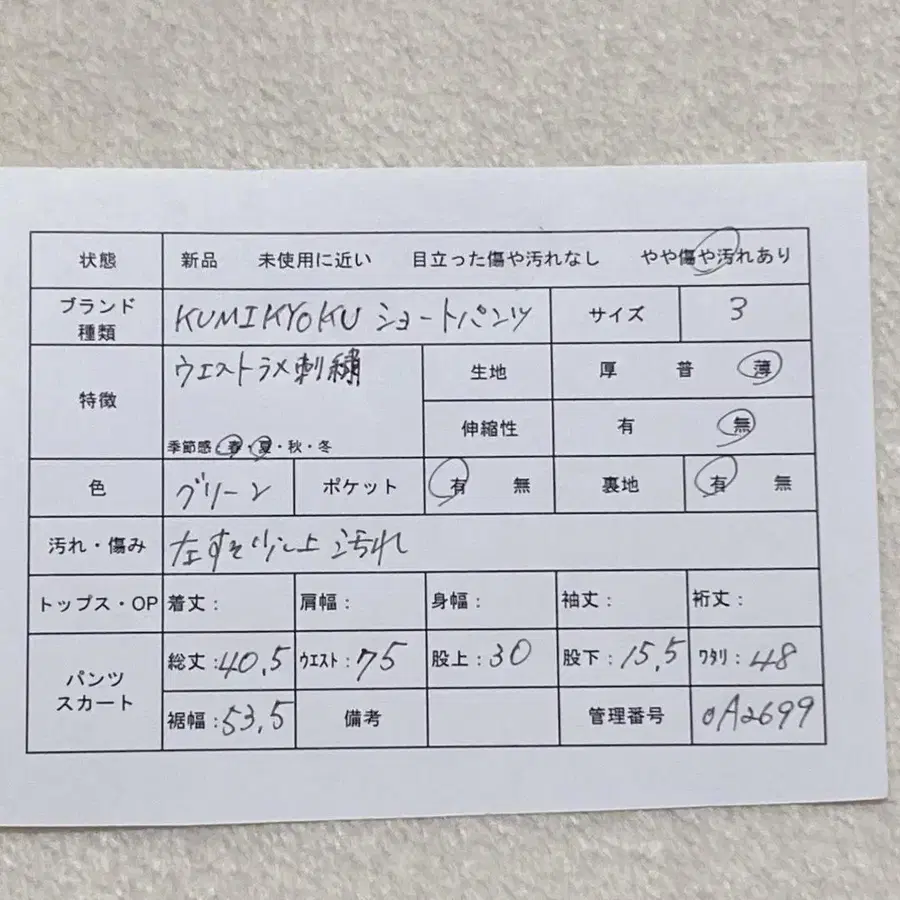 状態 新品 未使用に近い 目立った傷や汚れなし やや傷や汚れあり
ブランド 種類 KUMIKYOKU ショートパンツ サイズ 3
特徴 ウエストラメ刺繍 生地 厚 普 薄
季節感 春・夏・秋・冬 伸縮性 有 無
色 グリーン ポケット 有 無 裏地 有 無
汚れ・傷み 左すそ少し上汚れ
トップス・OP 着丈: 肩幅: 身幅: 袖丈: 裄丈:
パンツ スカート 総丈:40.5 ウエスト:75 股上:30 股下:15.5 ワタリ:48
裾幅:53.5 備考 管理番号 oA2699